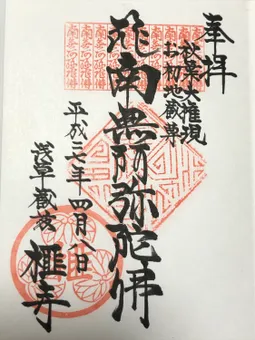 奉拝
秋葉大権現
お初地蔵尊
南無阿弥陀佛
平成三一年四月八日
浅草蔵前 榧寺